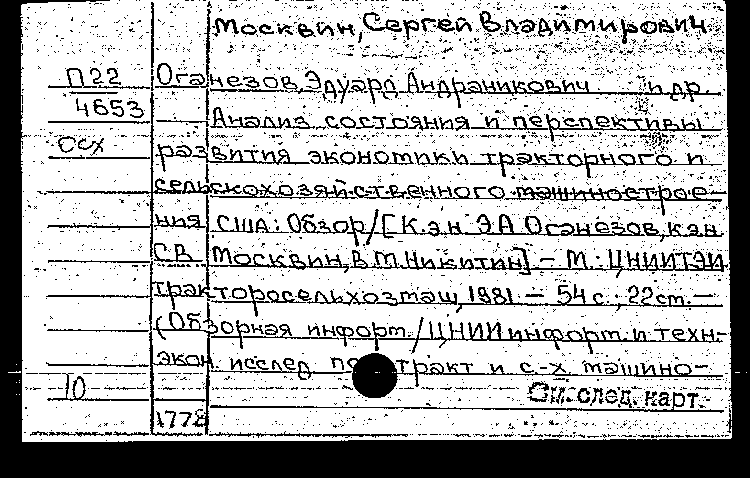 Москвин, Сергей Владимирович
П22 Оганезов, Эдуард Андраникович и др.
4653 Анализ состояния и перспективы
ОСХ развития экономики тракторного и
сельскохозяйственного машинострое-
ния США: Обзор/[К.э.н. Э А Оганезов, к.э.н.
С В Москвин, В.М. Никитин] – М.: ЦНИИТЭИ
тракторосельхозмаш, 1981. – 54 с.; 22 см. –
(Обзорная информ. / ЦНИИ информ. и техн.-
экон. исслед по тракт и с.-х. машино-
10 См. след. карт.
1778